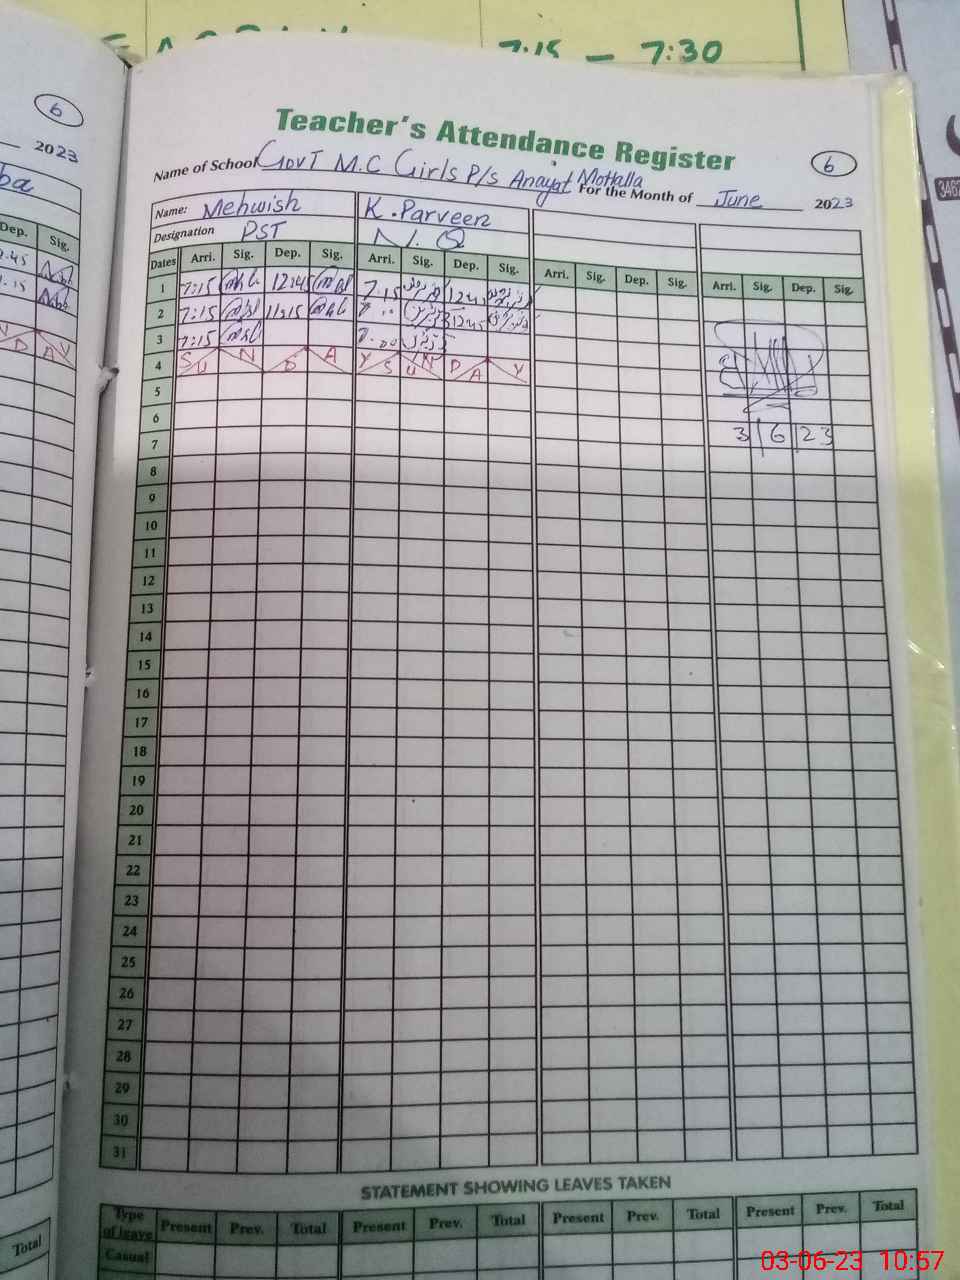 7:15 — 7:30
6
2023
Teacher's Attendance Register
6
Name of School Govt M.C Girls P/s Anayat Mohalla
For the Month of June 2023
Name: Mehwish K. Parveen
Designation PST N.Q
Dep. Sig.
Dates Arri. Sig. Dep. Sig. Arri. Sig. Dep. Sig. Arri. Sig. Dep. Sig. Arri. Sig. Dep. Sig.
1 7:15 12:45 7.15 1245
2 7:15 11:15 1245
3 7:15
4 S U N D A Y S U N D A Y
5
6
7 3 6 23
8
9
10
11
12
13
14
15
16
17
18
19
20
21
22
23
24
25
26
27
28
29
30
31
STATEMENT SHOWING LEAVES TAKEN
Type of leave Present Prev. Total Present Prev. Total Present Prev. Total Present Prev. Total
Casual
Total
03-06-23 10:57